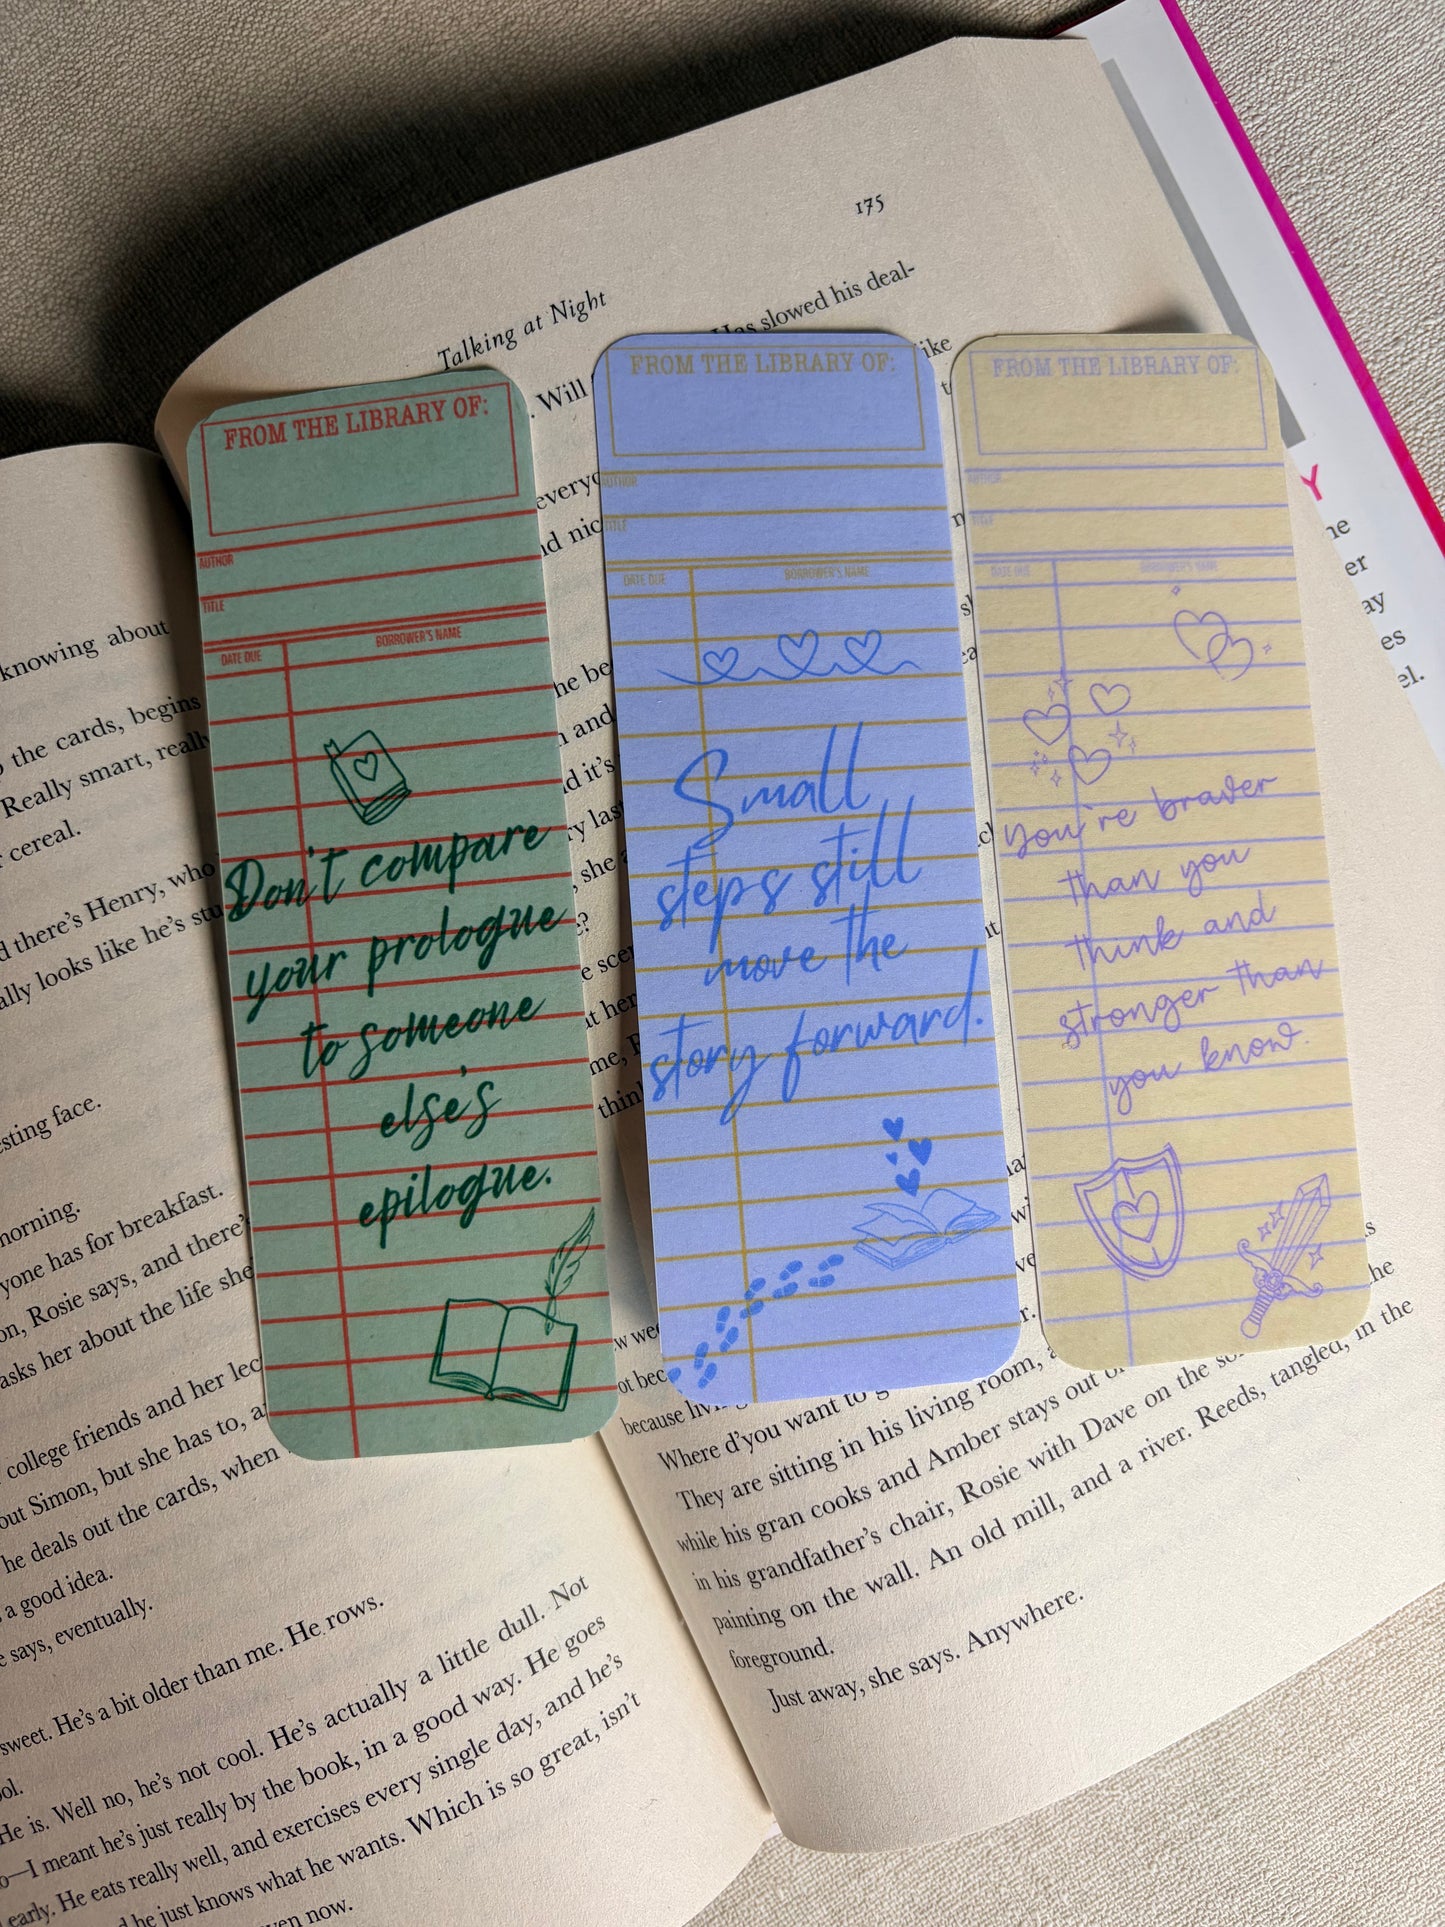 175
Talking at Night
Has slowed his deal-
like
. Will
everyo
nd nic
FROM THE LIBRARY OF:
AUTHOR
TITLE
DATE DUE
BORROWER'S NAME
Don't compare
your prologue
to someone
else's
epilogue.
FROM THE LIBRARY OF:
AUTHOR
TITLE
DATE DUE
BORROWER'S NAME
Small
steps still
move the
story forward.
FROM THE LIBRARY OF:
AUTHOR
TITLE
DATE DUE
BORROWER'S NAME
you're braver
than you
think and
stronger than
you know.
knowing about
o the cards, begins
Really smart, really
r cereal.
d there's Henry, who
ally looks like he's stu
esting face.
morning.
yone has for breakfast.
on, Rosie says, and there's
asks her about the life she
college friends and her lec
out Simon, but she has to, a
he deals out the cards, when
a good idea.
e says, eventually.
sweet. He's a bit older than me. He rows.
ool.
He is. Well no, he's not cool. He's actually a little dull. Not
o—I meant he's just really by the book, in a good way. He goes
early. He eats really well, and exercises every single day, and he's
d he just knows what he wants. Which is so great, isn't
ven now.
he be
n and
d it's
ry las
, she
?
e scen
at her
me, R
think
w wee
ot bec
because livi
Where d'you want to g
They are sitting in his living room, a
while his gran cooks and Amber stays out o
in his grandfather's chair, Rosie with Dave on the so
painting on the wall. An old mill, and a river. Reeds, tangled, in the
foreground.
Just away, she says. Anywhere.
Y
he
er
ay
es
el.